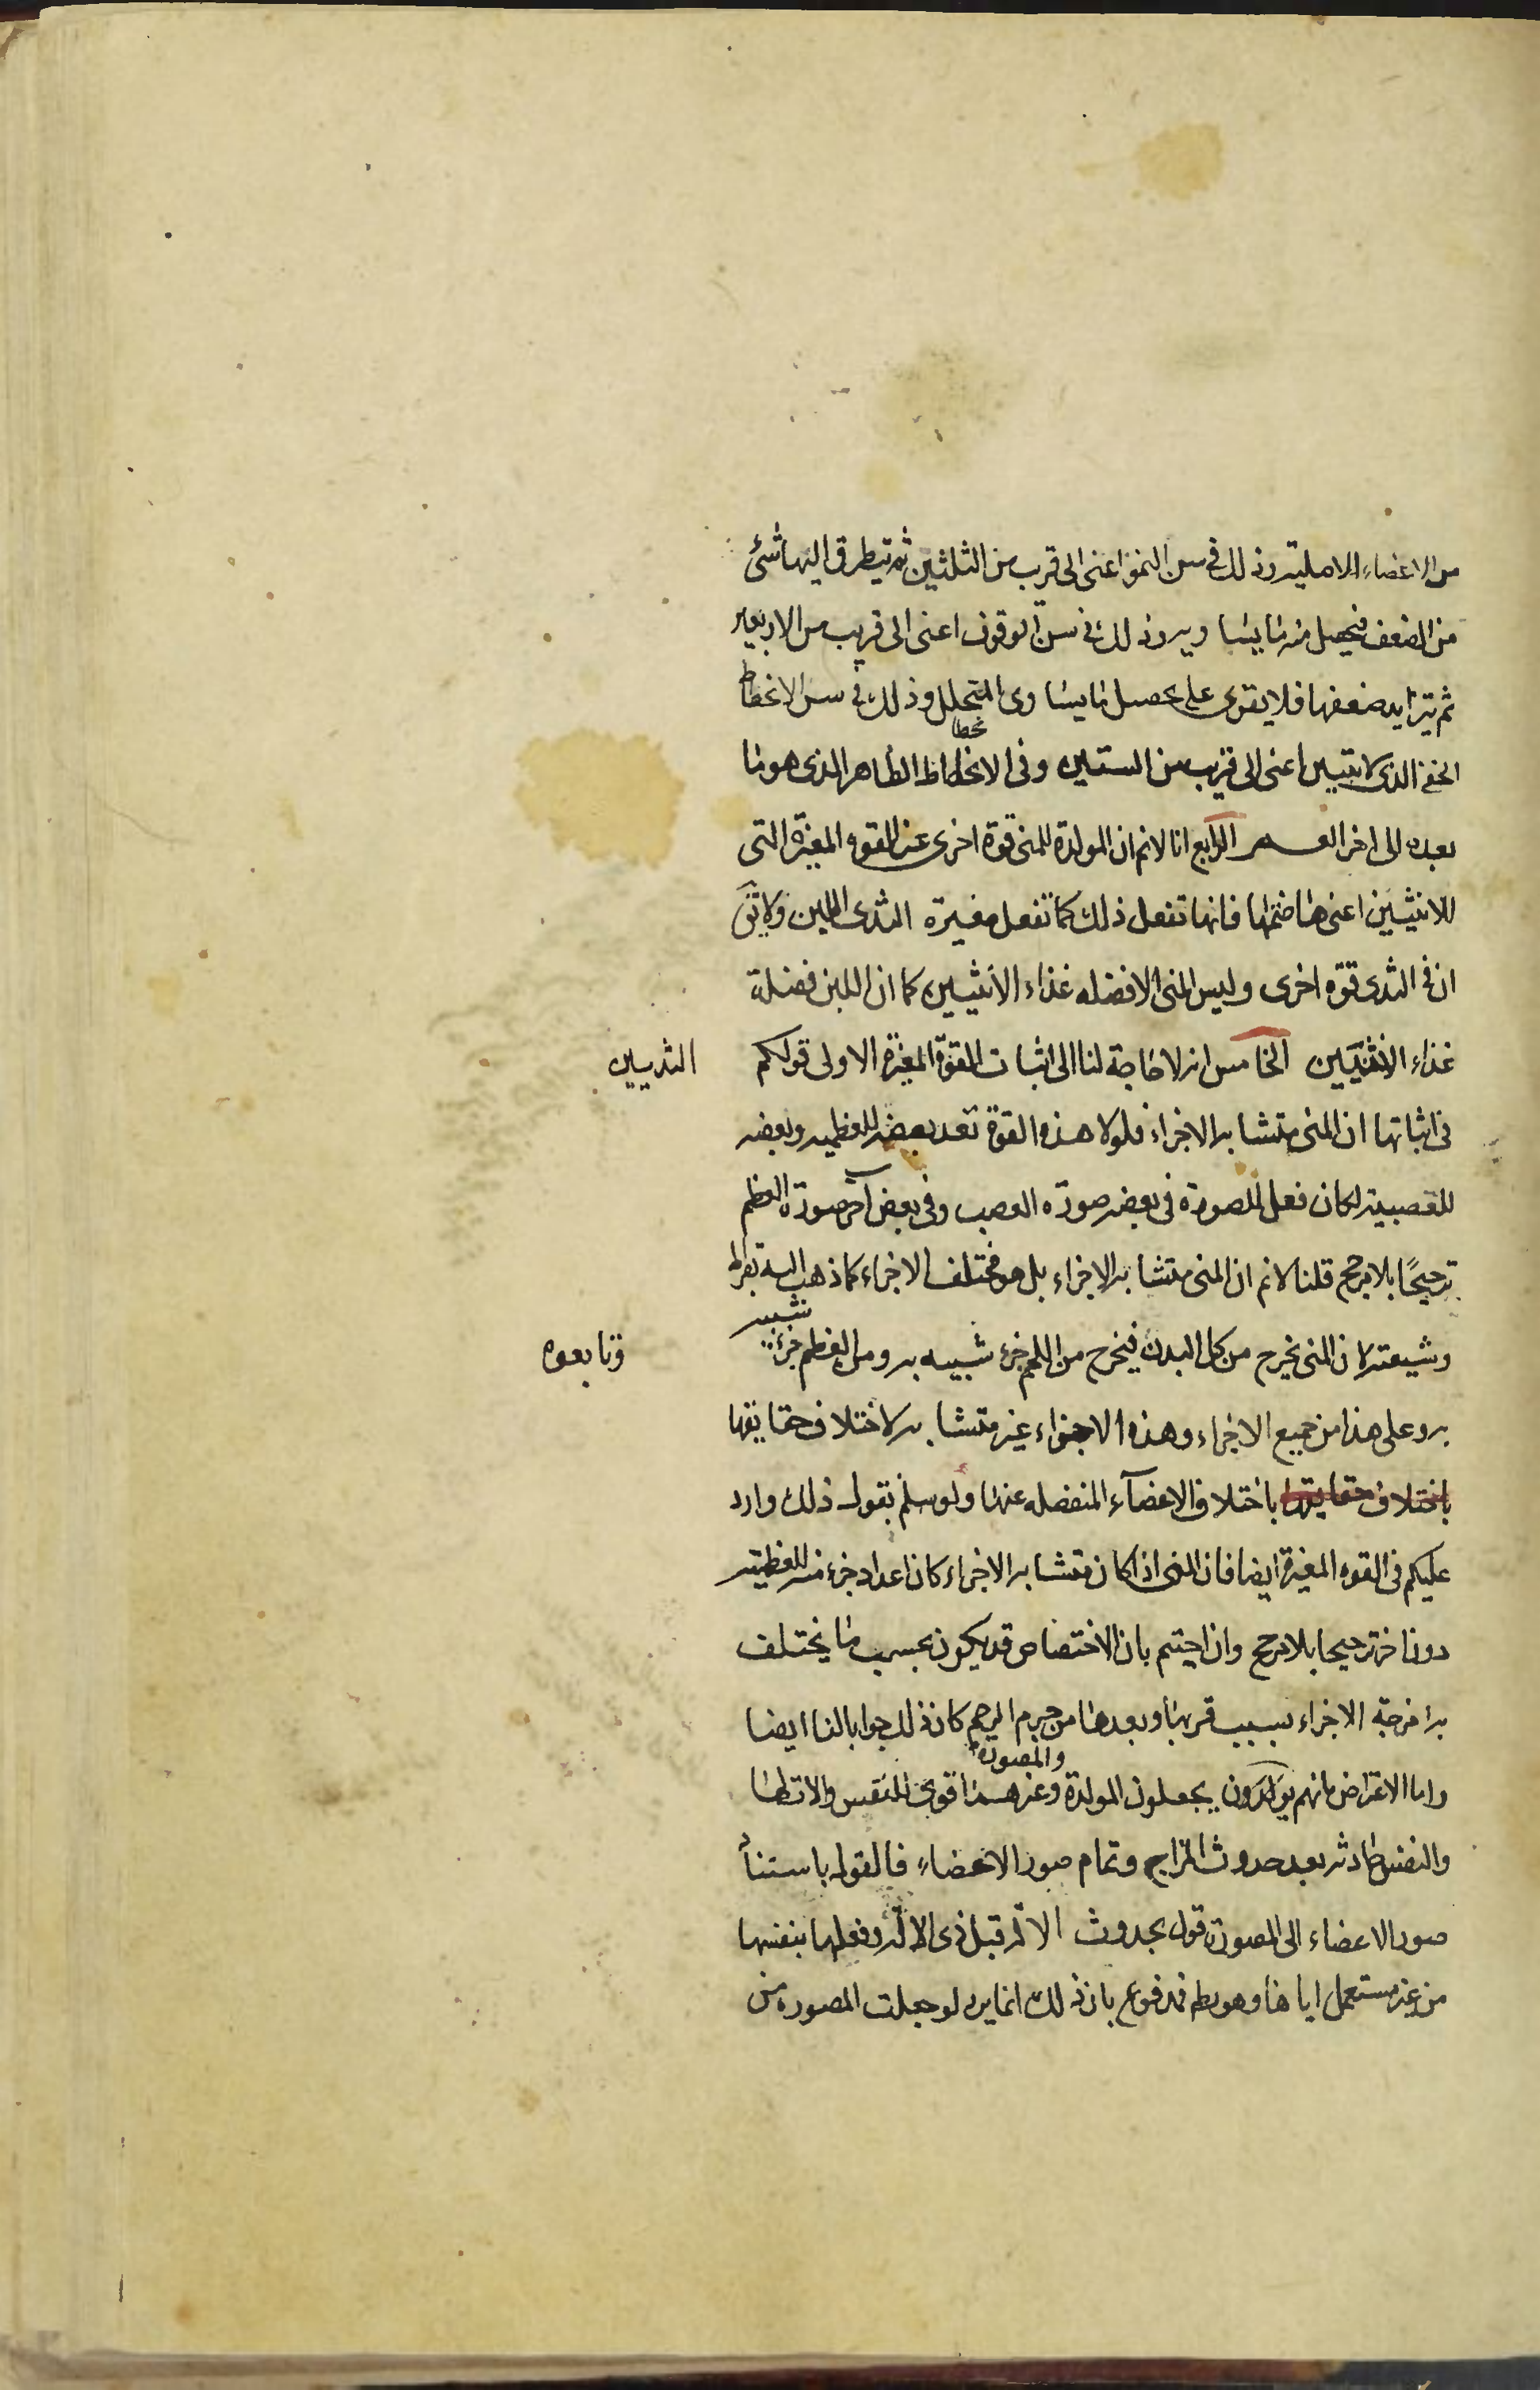 من الاعضاء الاصلية وذلك فى سن النمو اعنى الى قريب من الثلثين ثم يتطرق اليها شئ
من الضعف فيحصل منه ما يساويه وذلك فى سن الوقوف اعنى الى قريب من الاربعين
ثم يتزايد ضعفها فلا يقوى على تحصيل ما يساوى التحلل وذلك فى سن الانحطاط
الخفى الذى لا يتبين اعنى الى قريب من الستين وفى الانحطاط الظاهر الذى هو ما
نحطا
بعده الى اخر العمر الرابع انا لانم ان المولدة للمنى قوة اخرى غير القوة المغيرة التى
للانثيين اعنى هاضمتها فانها تفعل ذلك كما تفعل مغيرة الثدى اللبن ولا يق
ان فى الثدى قوة اخرى وليس المنى الا فضله غذاء الانثيين كما ان اللبن فضلة
غذاء الانثيين الخامس انه لا حاجة لنا الى اثبات القوة المغيرة الاولى قولكم
الثديين
فى اثباتها ان المنى متشابه الاجزاء فلولا هذه القوة تعد بعضه للعظمية وبعضه
للعصبية لكان فعل المصورة فى بعضه صورة العصب وفى بعض آخر صورة العظم
ترجيحًا بلا مرجح قلنا لانم ان المنى متشابه الاجزاء بل هو مختلف الاجزاء كما ذهب اليه بقراط
وشيعته لان المنى يخرج من كل البدن فيخرج من اللحم جزء شبيه به ومن العظم جزء
شبيه
وتابعوه
به وعلى هذا من جميع الاجزاء وهذه الاجزاء غير متشابه لاختلاف حقايقها
باختلاف حقايقها باختلاف الاعضآء المنفصله عنها ولو سلم بقول ذلك وارد
عليكم فى القوه المغيرة ايضا فان المنى اذا كان متشابه الاجزاء كان اعداد جزء منه للعظمية
دون اخر ترجيحا بلا مرجح وان اجبتم بان الاختصاص قد يكون بحسب ما يختلف
به امزجة الاجزاء بسبب قربها وبعدها من جرم الرحم كان ذلك جوابا لنا ايضا
واما الاعتراض بانهم يجعلون المولدة وغيرها قوى للنفس والاتها
والمصورة
والنفس حادثه بعد حدوث المزاج وتمام صور الاعضاء فالقول باستناد
صور الاعضاء الى المصورة قول بحدوث الآلة قبل ذى الآلة وفعلها بنفسها
من غير مستعمل اياها وهو بط فمدفوع بان ذلك انما يرد لو جعلت المصوره من